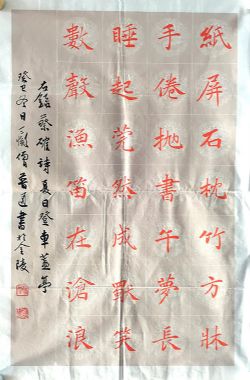 紙屏石枕竹方牀
手倦抛書午夢長
睡起莞然成獨笑
數聲漁笛在滄浪
右錄蔡確詩夏日登車蓋亭
癸巳冬日僧書於金陵